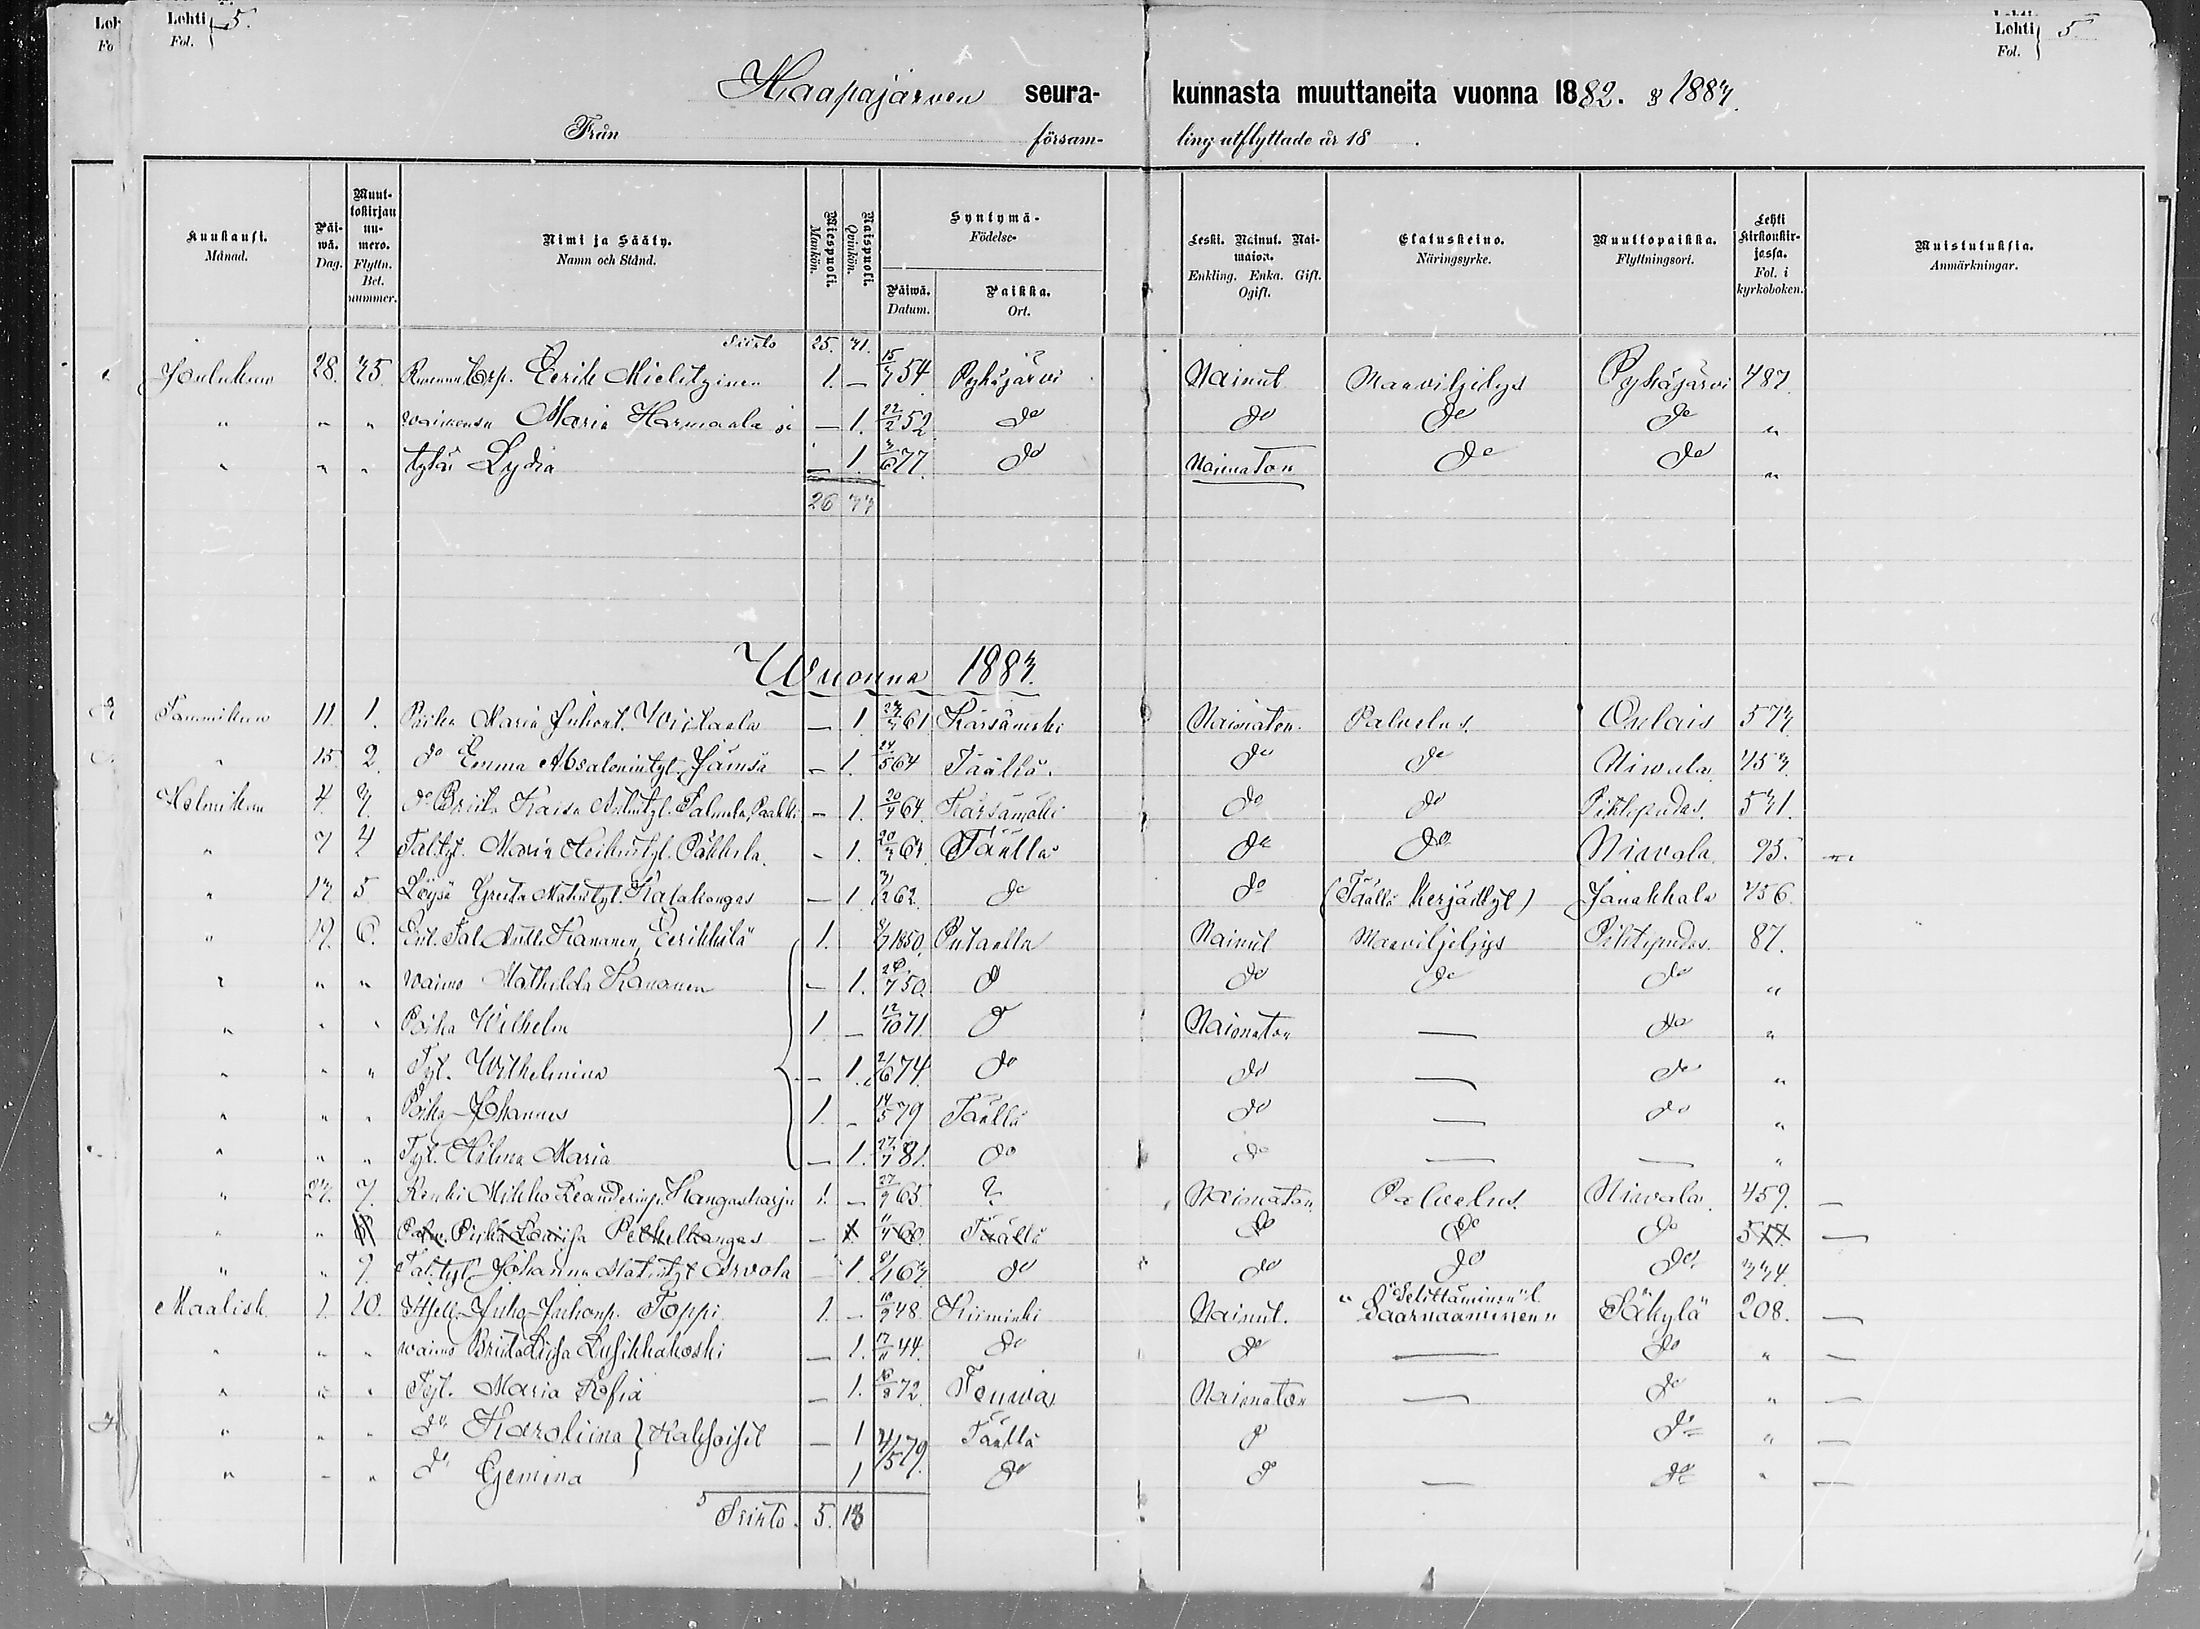 Lehti 5.
Fol.
Lehti 5
Fol.
Haapajärven seura- kunnasta muuttaneita vuonna 1882. & 1883.
Från försam- ling utflyttade år 18 .
Kuukausi. Månad.
Päiwä. Dag.
Muuttokirjan numero. Flyttn. Bet. nummer.
Nimi ja Sääty. Namn och Stånd.
Miespuoli. Mankön.
Naispuoli. Qvinkön.
Syntymä- Födelse-
Päiwä. Datum.
Paikka. Ort.
Leski. Nainut. Naimaton. Enkling. Enka. Gift. Ogift.
Elatuskeino. Näringsyrke.
Muuttopaikka. Flyttningsort.
Lehti kirkonkirjassa. Fol. i kyrkoboken.
Muistutuksia. Anmärkningar.
Siirto 25. 31.
Joulukuu 28. 35. Eerik Mielitzinen 1. — 54 Pyhäjärvi Nainut Maaviljelys Pyhäjärvi 387
" " " waimonsa Maria Harmaala ja — 1. 22/2 52 do do do do "
" " " tytär Lydia — 1. 3/6 77. do Naimaton do do "
26 33
Wuonna 1883.
Tammikuu 11. 1. Piika Maria Juhont. Wiitaala — 1. 61 Kärsämäki Naimaton. Palvelus. Oulais 573
" 15. 2. do Emma Absalomintyt. Jämsä — 1. 24/5 64 Täällä. do do Niwala 453
Helmikuu 4. 3. do Brita Kaisa Salmela, — 1. 64. Kärsämäki do do Pihtipudas. 531.
" 7 4 Tal.tyt. Maria Heikintyt. Pähkila. - 1. Täällä do do Niwala 95.
" 13 5 Löysä Greeta Matintyt. Katakangas — 1 62. do do (Täällä kerjäillyt) Janakkala 456.
" 19. 6. Ent. Tal. Antti Kananen, Eerikkilä 1. 1850. Putaalla Nainut Maaviljelys Pihtipudas. 87.
" " " waimo Mathilda Kananen — 1. 50. do do do do "
" " " Poika Wilhelm 1 — 12/10 71. do Naimaton — do "
" " " Tyt. Wilhelmina — 1. 2/6 74. do do — do "
" " " Poika Johannes 1. - 14/5 79 Täällä do — do "
" " " Tyt. Hilma Maria — 1. 81. do do — — "
" 23. 7. Renki Mikko Leanderinp. Kangasharju 1. — 27/9 65 ? Naimaton Palvelus. Niwala 459. —
" " 8 Piika Pethelkangas — 1 60. Täällä do do do —
" " 9. Tal. tyt. Johanna Matintyt Arvola — 1. do do do do 334.
Maalisk. 1. 10. Juho Juhonp. Toppi 1. - 10/9 48. Kiiminki Nainut. "Selittäminen" l. "Saarnaaminen" Säkylä 208. —
" " " waimo Briita Liisa Lusikkakoski — 1. 17/11 44. do do — do " —
" " " Tyt. Maria Sofia — 1. 72. Temwas Naimaton — do " —
" " " do Karoliina } Kaksoiset — 1 79. Täällä do do " —
" - " do Gemina } 1 do do — do " —
Siirto. 5. 18